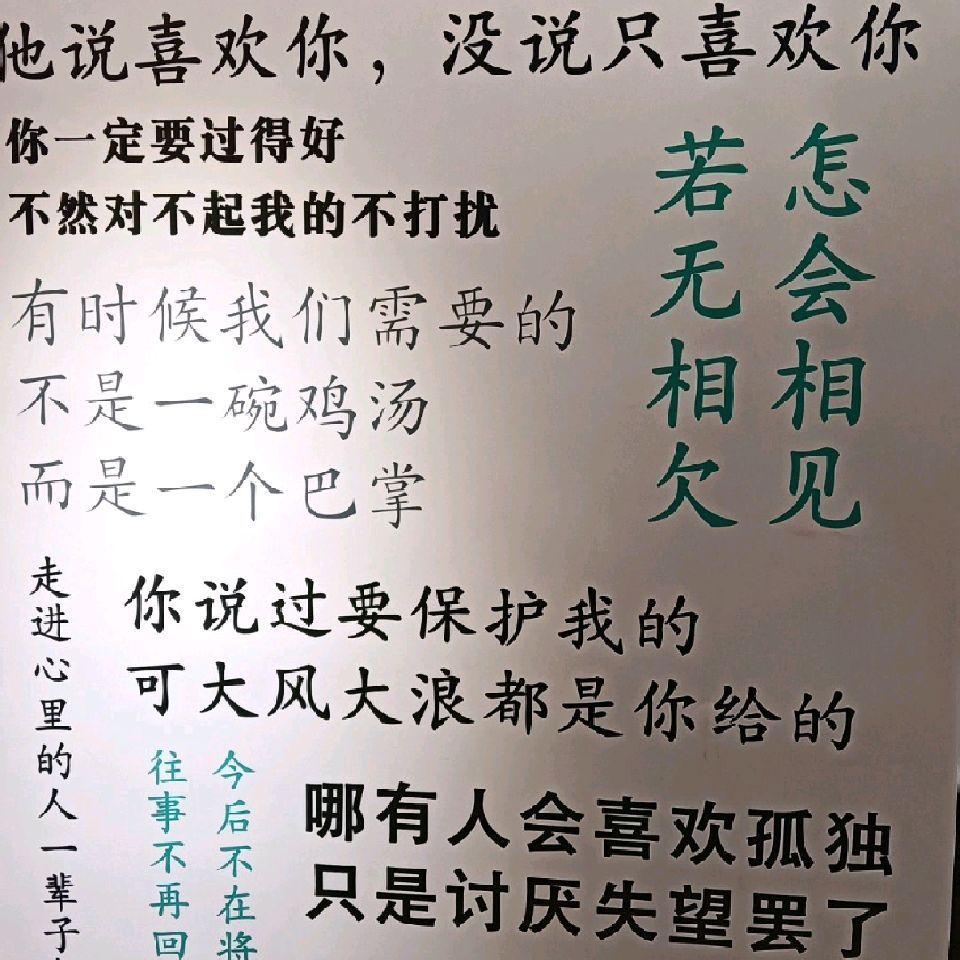 他说喜欢你，没说只喜欢你
你一定要过得好
不然对不起我的不打扰
怎会相见
若无相欠
有时候我们需要的
不是一碗鸡汤
而是一个巴掌
你说过要保护我的
可大风大浪都是你给的
走进心里的人一辈子
今后不在将
往事不再回
哪有人会喜欢孤独
只是讨厌失望罢了